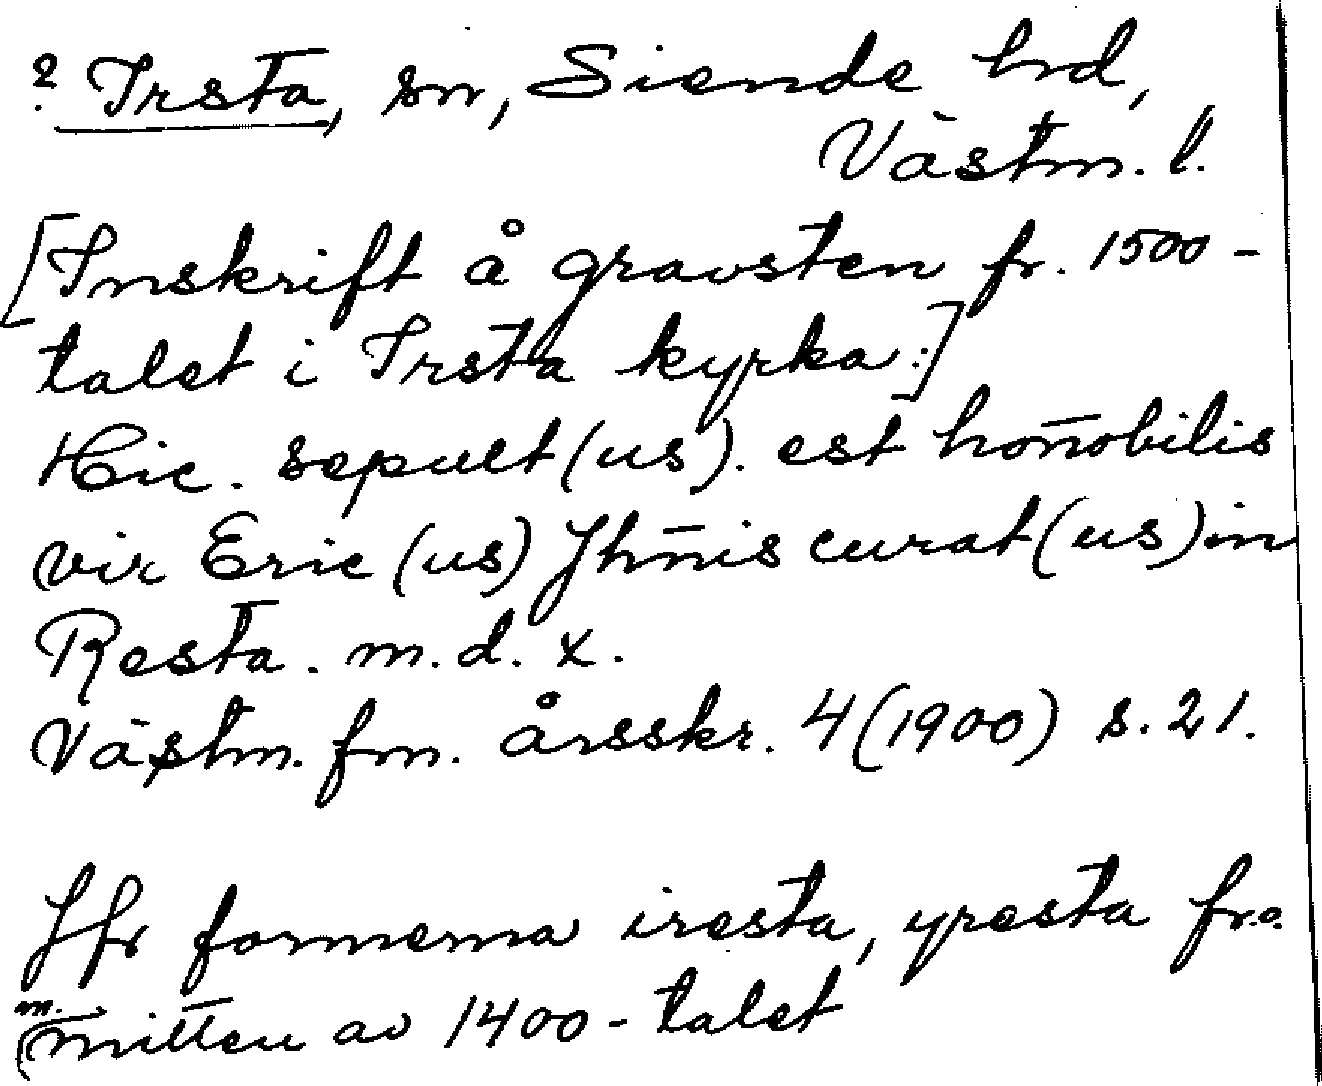 ? Irsta, sn, Siende hd,
Västm. l.
[Inskrift å gravsten fr. 1500-
talet i Irsta kyrka:]
Hic. sepult(us). est hon̄obilis
vir Eric(us) Jhn̄is curat(us) in
Resta. m.d.x.
Västm. fm. årsskr. 4 (1900) s. 21.
Jfr formerna iresta, yresta fr.o.
m. mitten av 1400-talet